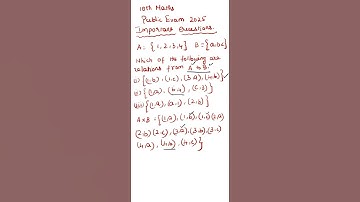 10th Maths
Public Exam 2025
Important Questions.
A = {1, 2, 3, 4} B = {a, b, c}
Which of the following are
relations from A to B.
(i) {(1,b), (1,c), (3,a), (4,b)}
(ii) {(1,a), (b,4), (c,3)}
(iii) {(1,a), (a,1), (2,b)}
A×B = {(1,a), (1,b), (1,c), (2,a)
(2,b) (2,c), (3,a), (3,b), (3,c)
(4,a), (4,b), (4,c)}